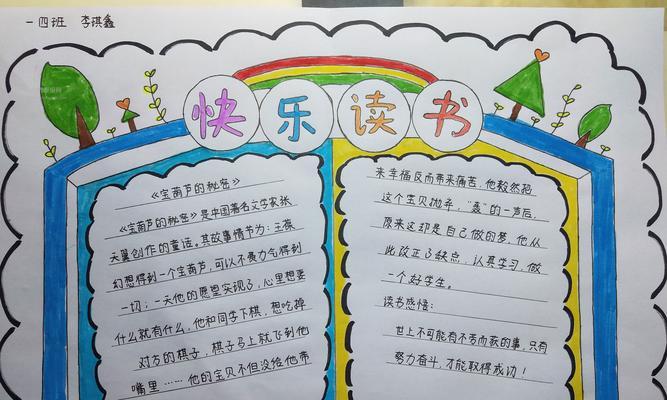 一四班 李淇鑫
快乐读书
《宝葫芦的秘密》
《宝葫芦的秘密》是中国著名文学家张
天翼创作的童话。其故事情节为：王葆
幻想得到一个宝葫芦，可以不费力气得到
一切；一天他的愿望实现了，心里想要
什么就有什么，他和同学下棋，想吃掉
对方的棋子，棋子马上就飞到他
嘴里……他的宝贝不但没给他带
来幸福反而带来痛苦。他毅然把
这个宝贝抛弃，“轰”的一声后，
原来这却是自己做的梦，他从
此改正了缺点，认真学习，做
一个好学生。
读书感悟：
世上不可能有不劳而获的事，只有
努力奋斗，才能取得成功！